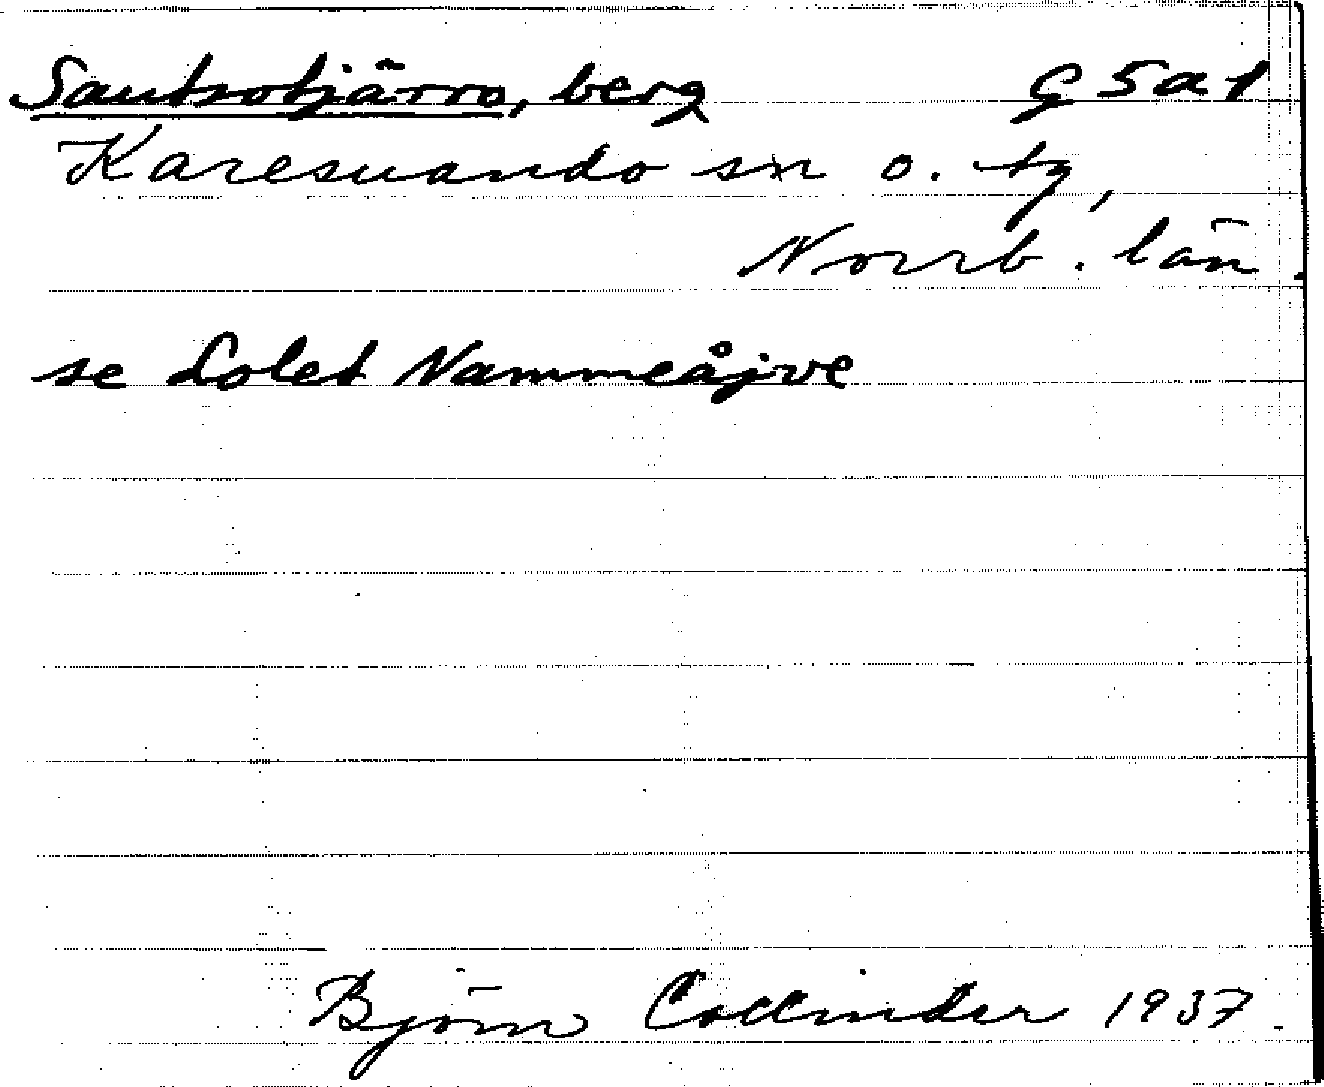 Sautsotjärro, berg G 5 a 1
Karesuando sn o. tg,
Norrb. län.
se Lolet Nammeåjve
Björn Collinder 1937.